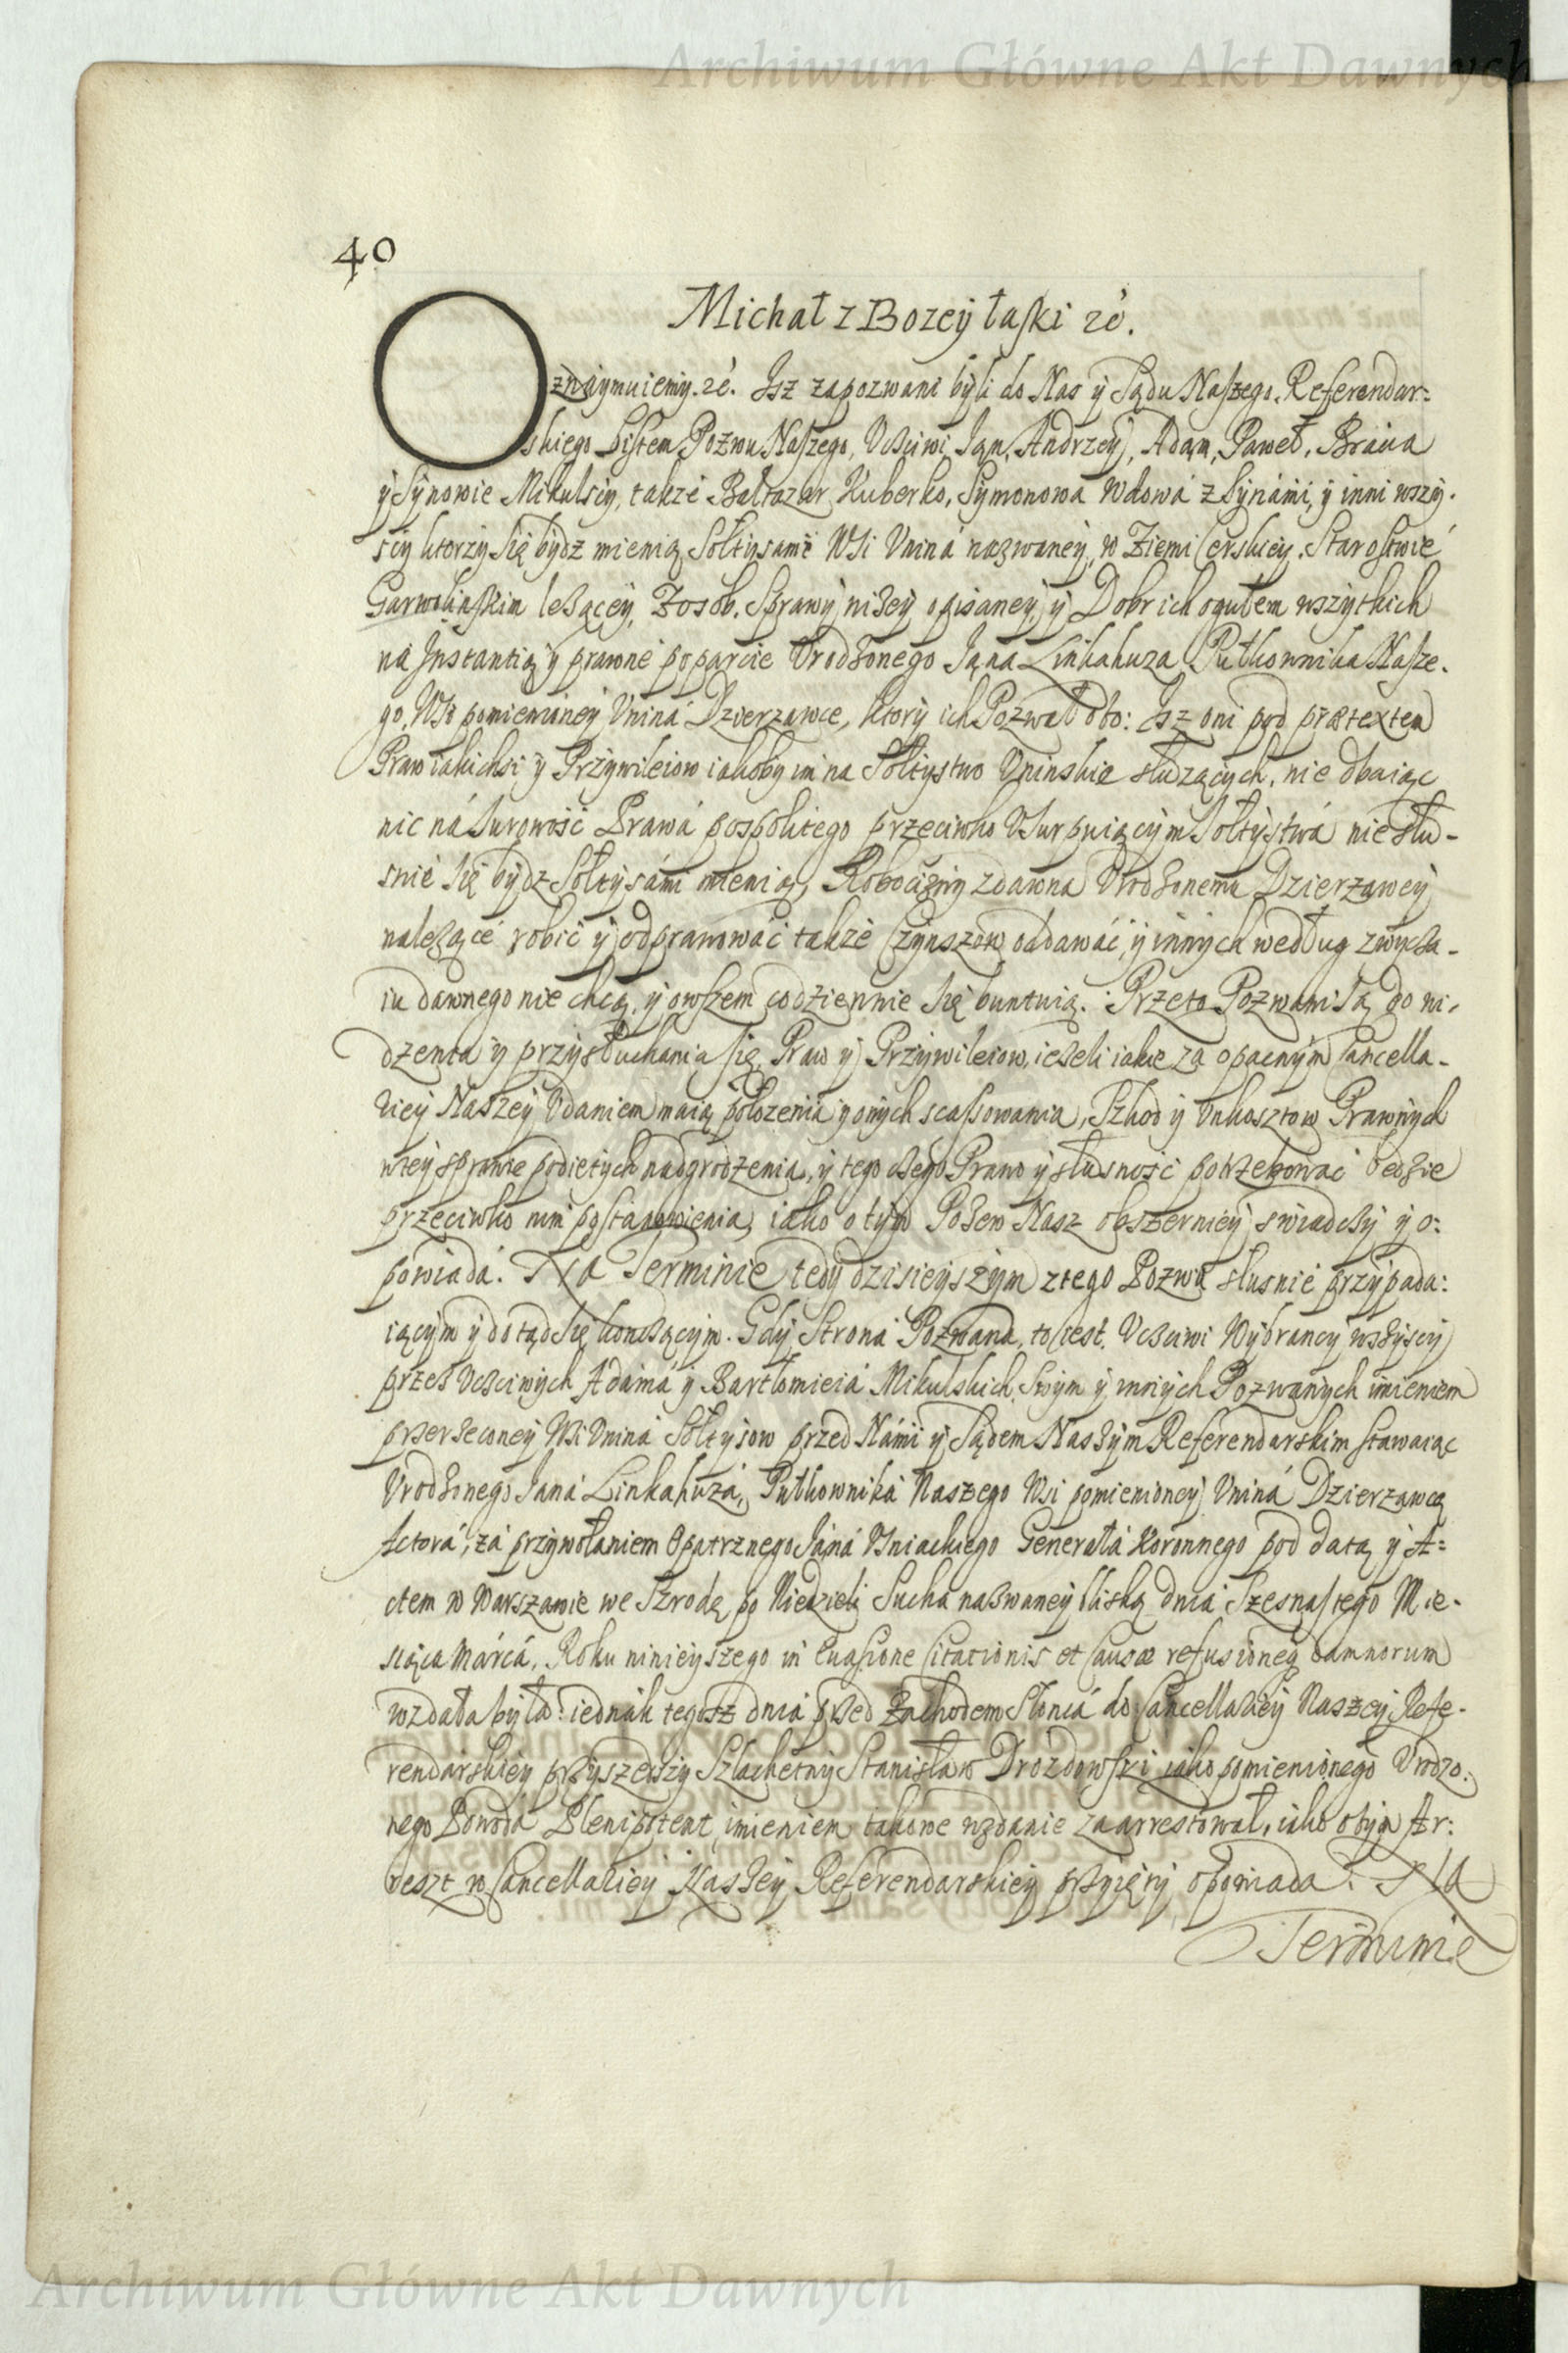 Archiwum Główne Akt Dawnych
40
Michał z Bozey łaski &c.
Oznaymuiemy. &c. Jsz zapozwani byli do Nas y Sądu Naszego Referendar:
skiego Listem Pozwu Naszego, Vcżciwi Ian, Andrzey, Adam, Paweł, Bracia
y Synowie Mikulscy, także Baltazar Kuberko, Symonowa Wdowá z Synámi, y inni wszy-
scy ktorzy się bydz mienią Sołtysamí Wsi Vniná nazwaney, w Ziemi Cerskiey, Starostwié
Garwolinskim leżącey, Zosob. Sprawy niżey opisaney, y Dobr ich ogułem wszytkich
ná Jnstantią y prawné poparcie Vrodzonego Jana Linkahuza Pułkownika Nasze-
go, Wsi pomienioney Vniná Dzierzawce, ktory ich Pozwał oto: Jsz oni pod prætextem
Praw iakichsi y Przywileiow iakoby im na Sołtystwo Vninskie służących, nie dbaiąc
nic ná Surowość Prawá pospolitego przeciwko Vsurpuiącym Sołtystwá niesłu-
snié się bydz Sołtysámi mienią, Robocizny zdawna Vrodzonemu Dzierzawcy
należącé robić y odprawować także Czynszow oddawáć, y innych według zwycza-
iu dawnego nie chcą, y owszem codziennie się buntuią. Przeto Pozwani są do wi-
dzenia y przysłuchania się, Praw y Przywileiow, ieżeli iakie za opacnym Cancella-
riey Naszey Vdaniem maią położenia y onych scassowania, Szkod y Vnkosztow Prawnych
wtey sprawie podietych nadgrodzenia, y tego czego Prawo y słusność potrzebować będzie
przeciwko nim postanowienia, iako o tym Pozew Nasz obszerniey swiadczy y o:
powiada. Na Terminie tedy dzisieyszym ztego Pozwu słusnié przypada:
iącym y dotąd się kontżącym. Gdy Stroná Pozwana, to iest. Vcżciwi Wybrancy wszyscy
przez Vcżciwych Adámá y Bartłomieiá Mikulskich Swym y innych Pozwanych imieniem
przerzeconey Wsi Vniná Sołtysow przed Námi y Sądem Naszym Referendarskim stawaiąc
Vrodzonego Janá Linkahuzá, Pułkowniká Naszego Wsi pomienioney Vniná Dzierzawcę
Actorá, zá przywołaniem Opatrznego Jáná Vsniackiego Generałá Koronnego pod datą y A:
ctem w Warszawie we Szrodę po Niedzieli Sucha nazwaney bliską dniá Szesnastego Mie-
siąca Márcá, Roku ninieyszego in Euasione Citationis et Causæ refusioneq damnorum
wzdała byłá: iednák tegosz dniá przed Zachodem Słoncá do Cancellariey Naszey Refe-
rendarskiey przyszedszy Szlachetny Stanisław Drozdowski iáko pomienionego Vrodzo:
nego Powodá Plenipotent, imieniem takowe wzdanie zaarrestował, iako o tym Ar:
reszt w Cancellariey Naszey Referendarskiey przyięty opowiada. Na
Terminie
Archiwum Główne Akt Dawnych